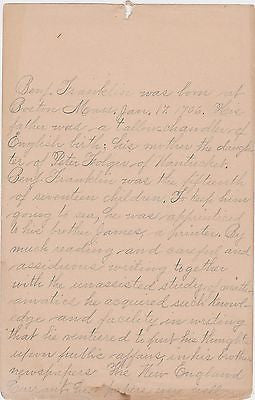 Benj. Franklin was born at
Boston Mass. Jan. 17. 1706. His
father was a tallowchandler of
English birth; his mother the daugh-
ter of Peter Folger of Nantucket.
Benj. Franklin was the fifteenth
of seventeen children. To keep him
going to sea, he was apprenticed
to his brother James, a printer. By
much reading and careful and
assiduous writing together
with the unassisted study of arith-
matics he acquired such knowl-
edge and facility in writing
that he ventured to put his thought
upon public affairs, in his brothers
newspapers. The New England